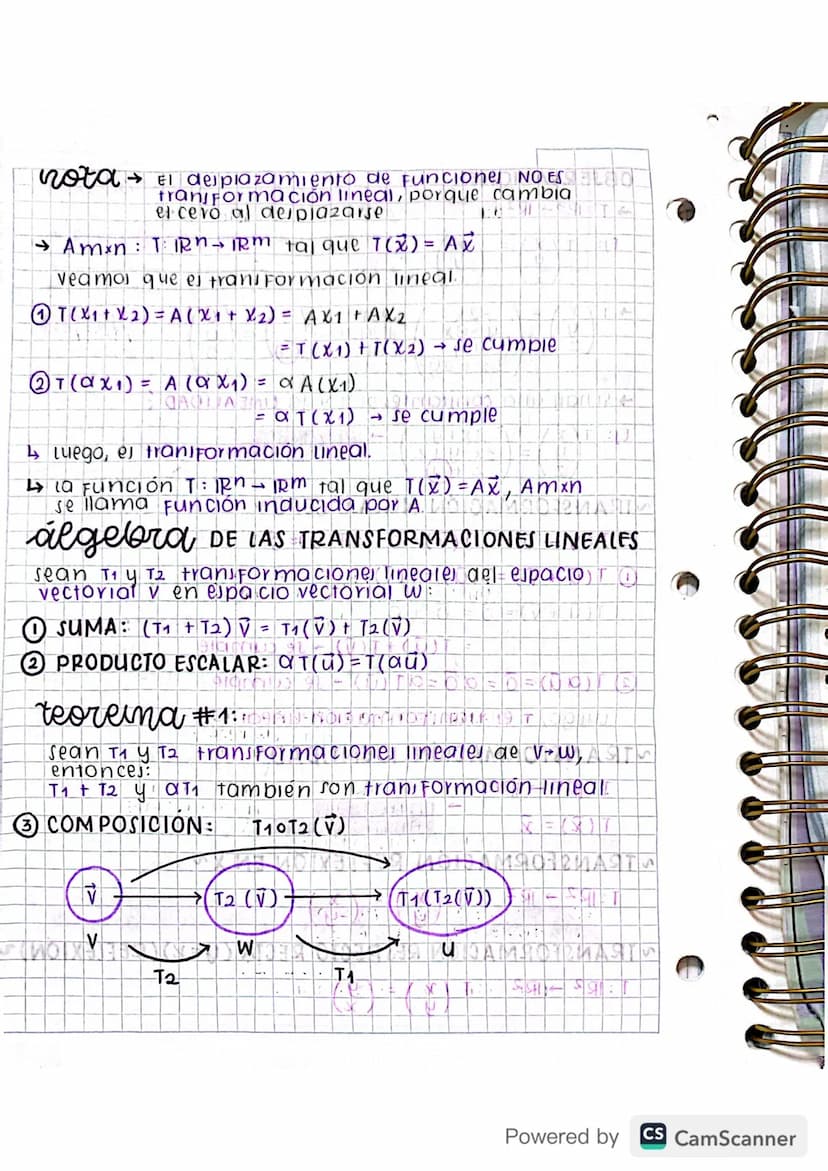 nota → El desplazamiento de funciones NO ES
transformación lineal, porque cambia
el cero al desplazarse
→ Amxn : T: IRn → IRm tal que T(x⃗) = Ax⃗
veamos que es transformación lineal.
① T(x1 + x2) = A(x1 + x2) = Ax1 + Ax2
= T(x1) + T(x2) → se cumple
② T(αx1) = A(αx1) = αA(x1)
= αT(x1) → se cumple
↳ luego, es transformación lineal.
↳ la función T: IRn → IRm tal que T(x⃗) = Ax⃗, Amxn
se llama función inducida por A.
álgebra DE LAS TRANSFORMACIONES LINEALES
sean T1 y T2 transformaciones lineales del espacio
vectorial V en espacio vectorial W:
① SUMA: (T1 + T2) v⃗ = T1(v⃗) + T2(v⃗)
② PRODUCTO ESCALAR: αT(u⃗) = T(au⃗)
teorema #1:
sean T1 y T2 transformaciones lineales de V→W,
entonces:
T1 + T2 y αT1 también son transformación lineal.
③ COMPOSICIÓN: T1oT2(v⃗)
v⃗ T2(v⃗) T1(T2(v⃗))
V W U
T2 T1
Powered by CS CamScanner